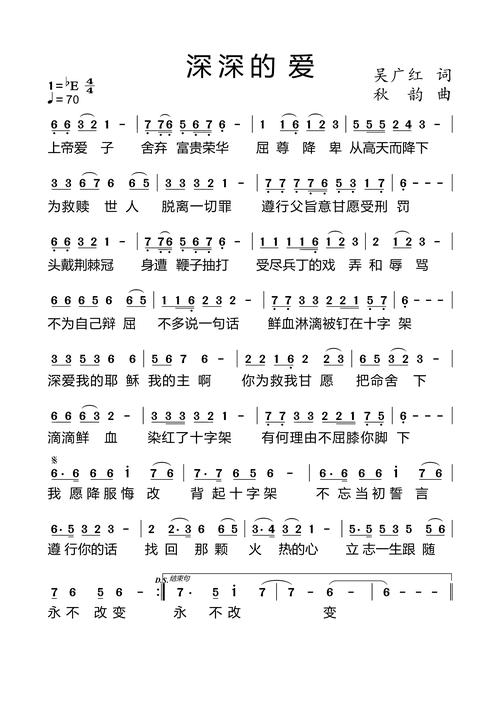 深深的 爱
1=♭E 4/4
♩=70
吴广红 词
秋 韵 曲
6 6 3 2 1 - | 7 7 6 5 6 7 6 - | 1 1 6 1 2 3 | 5 5 5 4 2 3 - |
上帝爱 子 舍弃 富贵荣华 屈 尊 降 卑 从高天而降下
3 3 6 7 6 6 5 | 3 3 3 2 1 - | 7 7 7 7 6 5 6 7 | 6 - - - |
为救赎 世 人 脱离一切罪 遵行父旨意甘愿受刑 罚
6 6 3 2 1 - | 7 7 6 5 6 7 6 - | 1 1 1 1 6 1 2 3 | 2 1 7 6 - |
头戴荆棘冠 身遭 鞭子抽打 受尽兵丁的戏 弄 和 辱 骂
3 3 6 5 6 6 5 | 1 1 6 2 3 2 - | 7 7 3 3 2 2 1 5 7 | 6 - - - |
不为自己辩 屈 不多说一句话 鲜血淋漓被钉在十字 架
3 5 3 5 6 3 | 5 6 7 6 - | 2 2 1 6 2 2 3 | 5 6 7 3 - |
深爱我的耶 稣 我的主 啊 你为救我甘 愿 把命舍 下
6 6 6 3 2 - | 3 3 3 3 2 1 - | 7 7 3 3 2 2 1 7 5 | 6 - - - |
滴滴鲜 血 染红了十字架 有何理由不屈膝你脚 下
6· 6 6 6 i 7 6 | 7 7 6 5 6 - | 6· 6 6 6 i 7 6 7 |
我 愿降服悔 改 背 起十字架 不 忘当初誓 言
6· 5 3 2 3 - | 2 2·3 6 6 5 | 3·4 3 2 1 - | 5·5 5 5 6 5 6 |
遵 行你的话 找 回 那 颗 火 热的心 立志一生跟 随
D.S. 结束句
7 6 5 6 - :‖ 7· 5 i 7 | 7 - 6 - | 7 - - - | 7 - - - ‖
永不 改变 永 不改 变